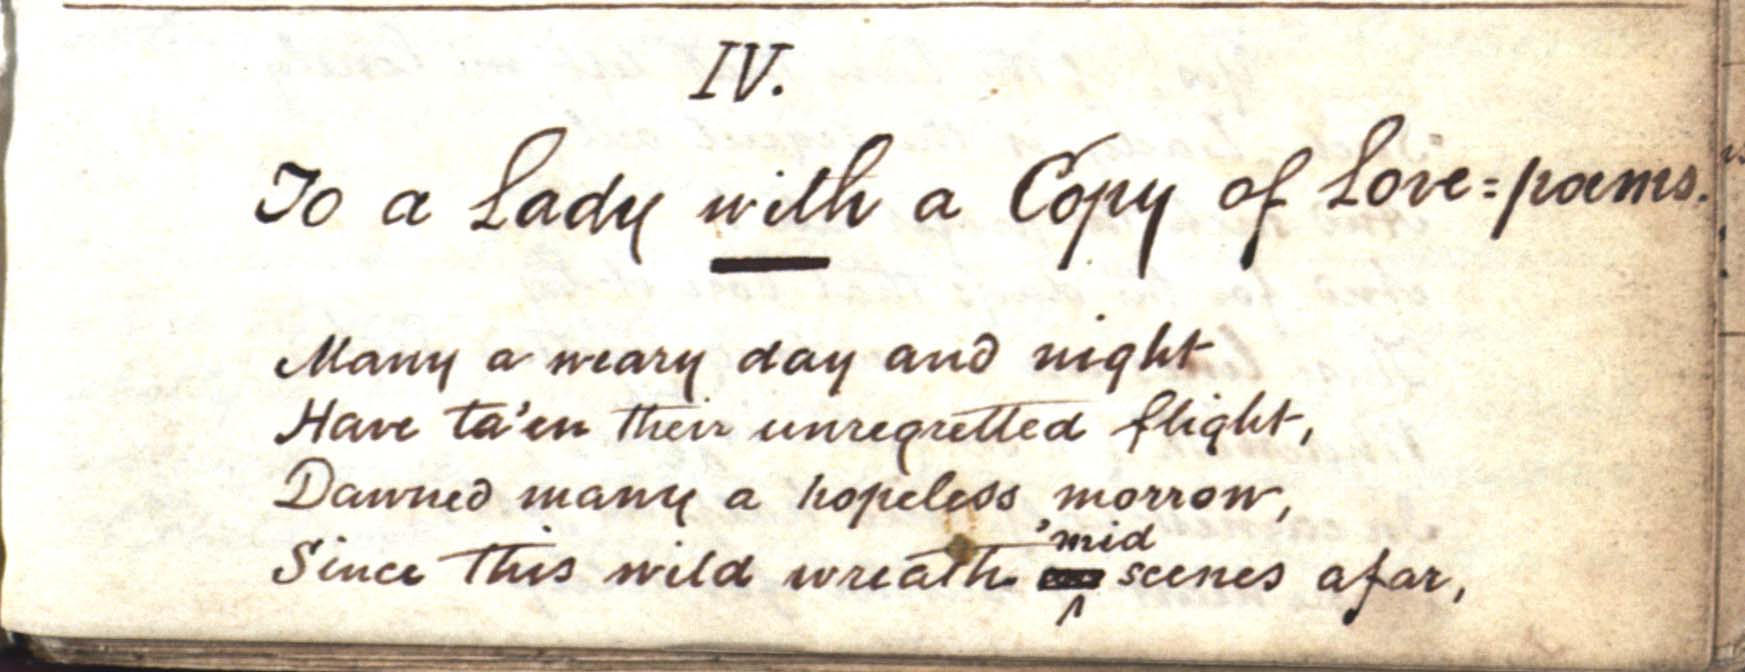 IV.
To a Lady with a Copy of Love=poems.
Many a weary day and night
Have ta'en their unregretted flight,
Dawned many a hopeless morrow,
Since this wild wreath 'mid scenes afar,